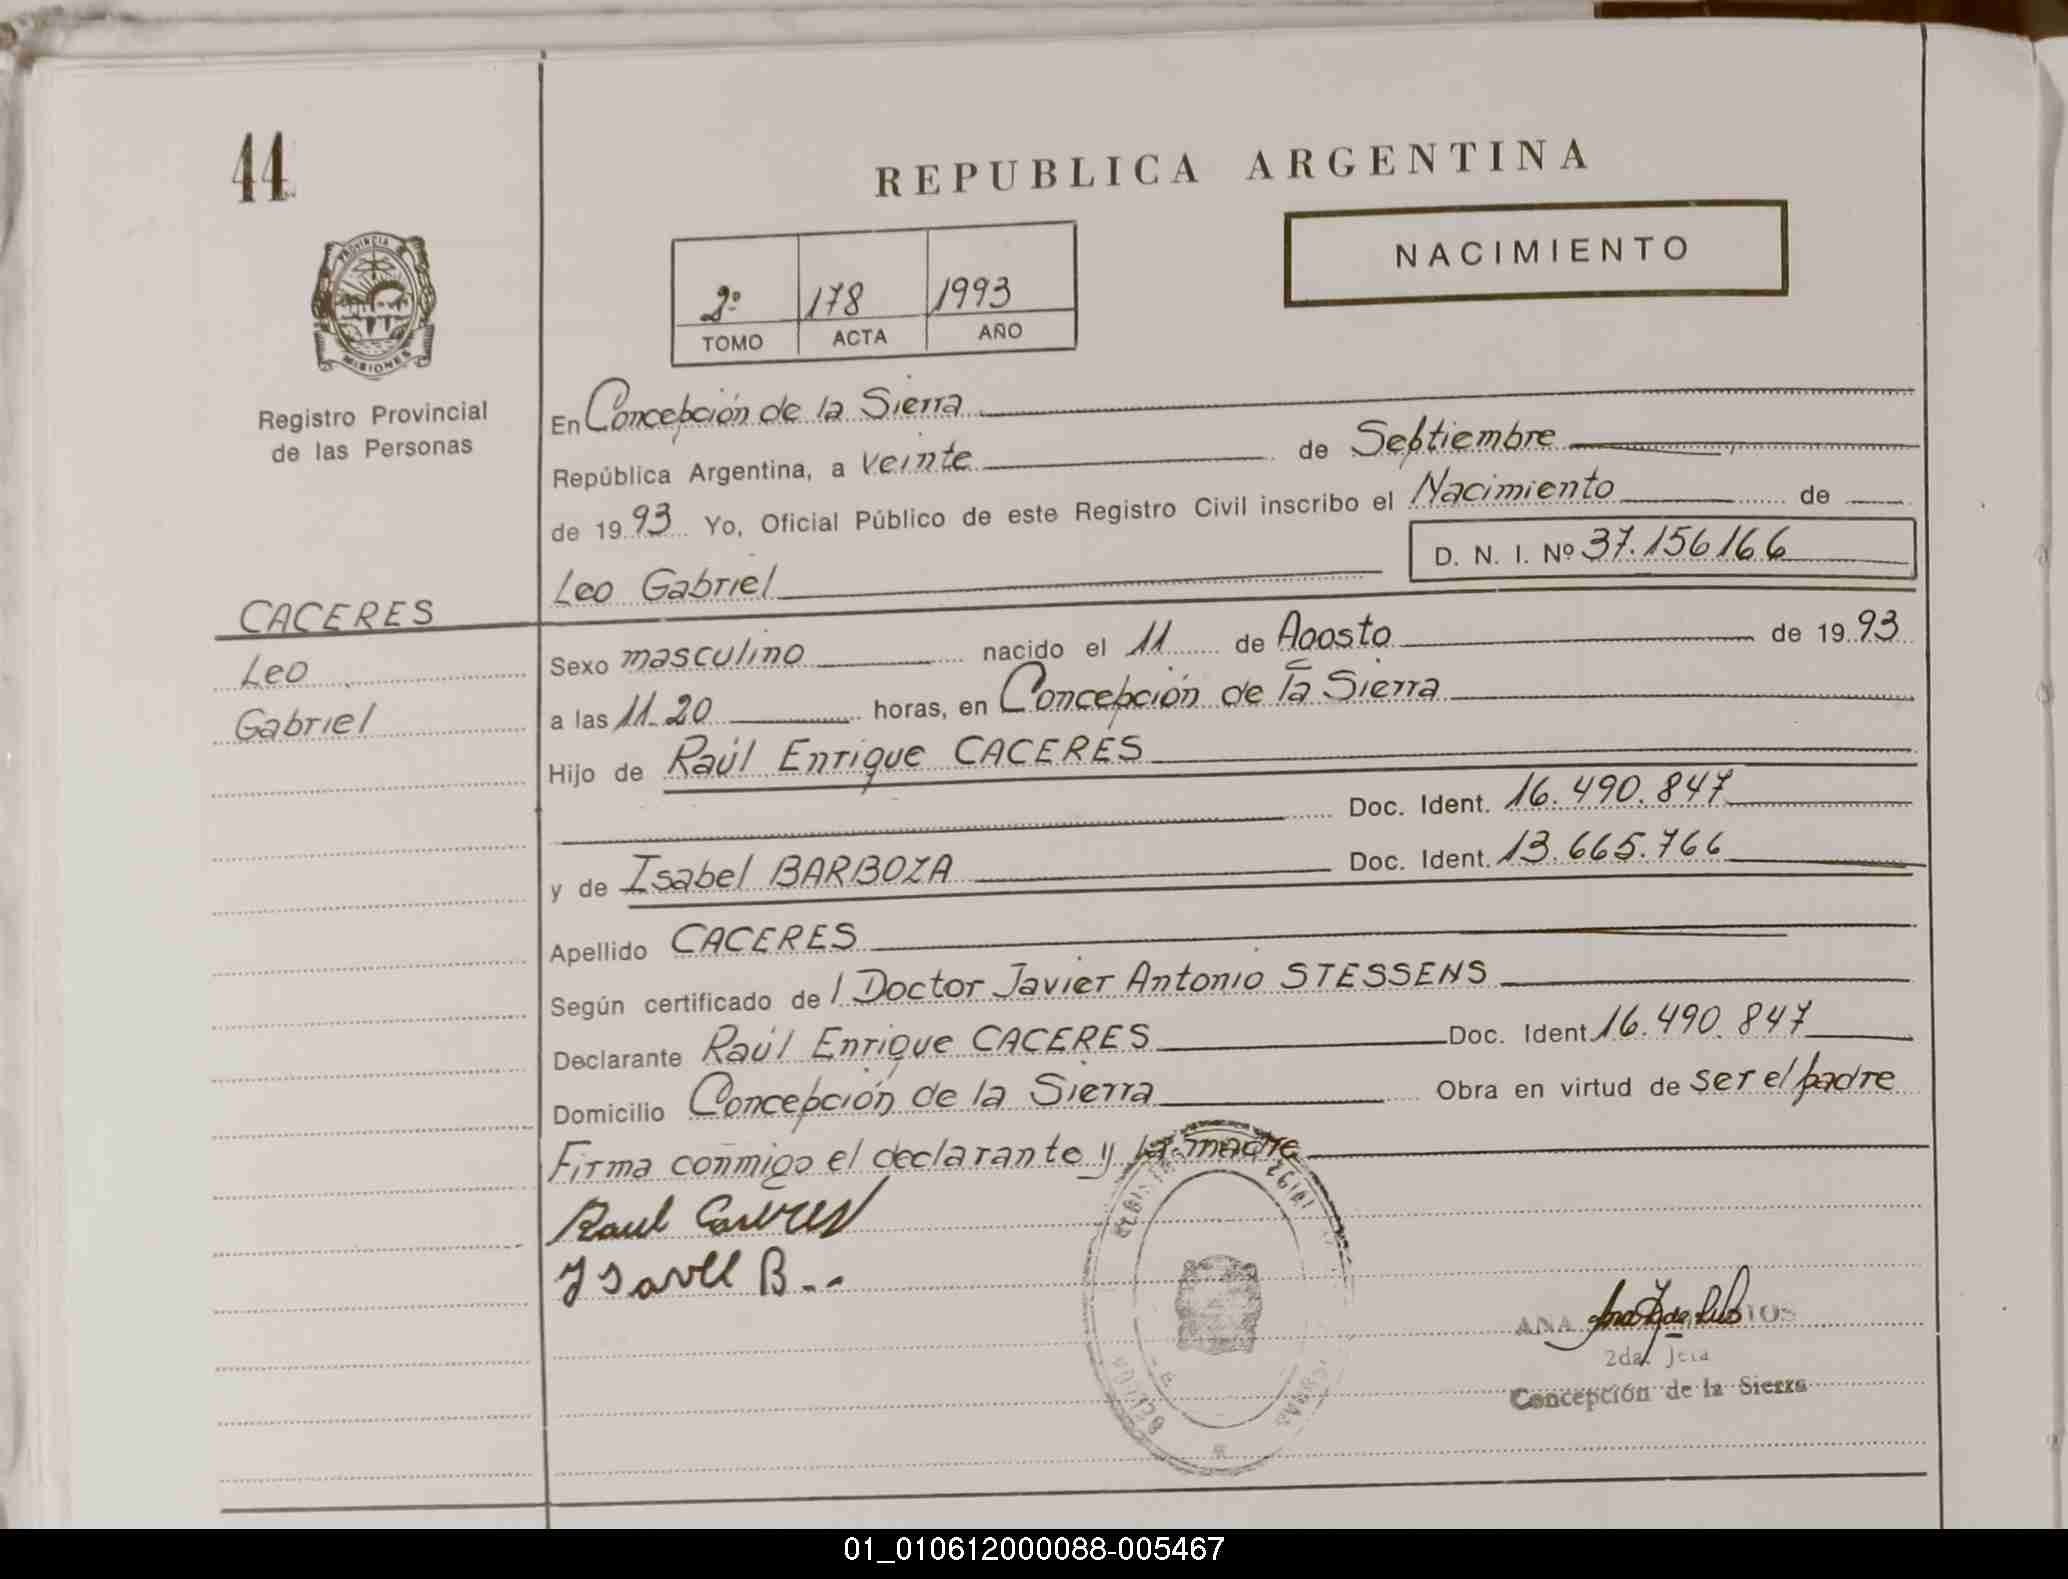 44
REPUBLICA ARGENTINA
NACIMIENTO
2º 178 1993
TOMO ACTA AÑO
PROVINCIA DE
MISIONES
Registro Provincial
de las Personas
En Concepción de la Sierra
República Argentina, a veinte de Septiembre
de 1993 Yo, Oficial Público de este Registro Civil inscribo el Nacimiento de
D. N. I. Nº 37.156166
Leo Gabriel
CACERES
Leo
Gabriel
Sexo masculino nacido el 11 de Agosto de 1993
a las 11.20 horas, en Concepción de la Sierra
Hijo de Raúl Enrique CACERES
Doc. Ident. 16.490.847
y de Isabel BARBOZA Doc. Ident. 13.665.766
Apellido CACERES
Según certificado del Doctor Javier Antonio STESSENS
Declarante Raúl Enrique CACERES Doc. Ident. 16.490.847
Domicilio Concepción de la Sierra Obra en virtud de ser el padre
Firma conmigo el declarante y la madre
Raul Caceres
Ysavel B..
ANA
2da. Jefa
Concepción de la Sierra
01_010612000088-005467